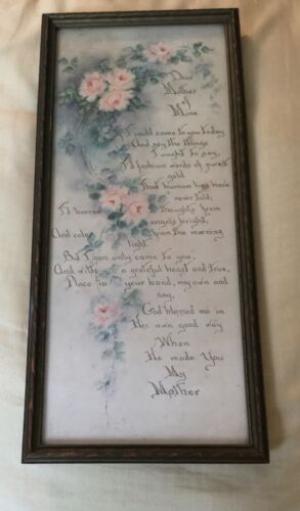 Dear
Mother
of
Mine
I could come to you today
And say the things
I want to say,
I'd fashion words of purest
gold
That human lips have
never told;
I'd borrow thoughts from
angels bright,
And color from the morning
light.
But I can only come to you,
And with a grateful heart and true,
Place in your hand, my own and
say,
God blessed me in
His own good way
When
He made You
My
Mother